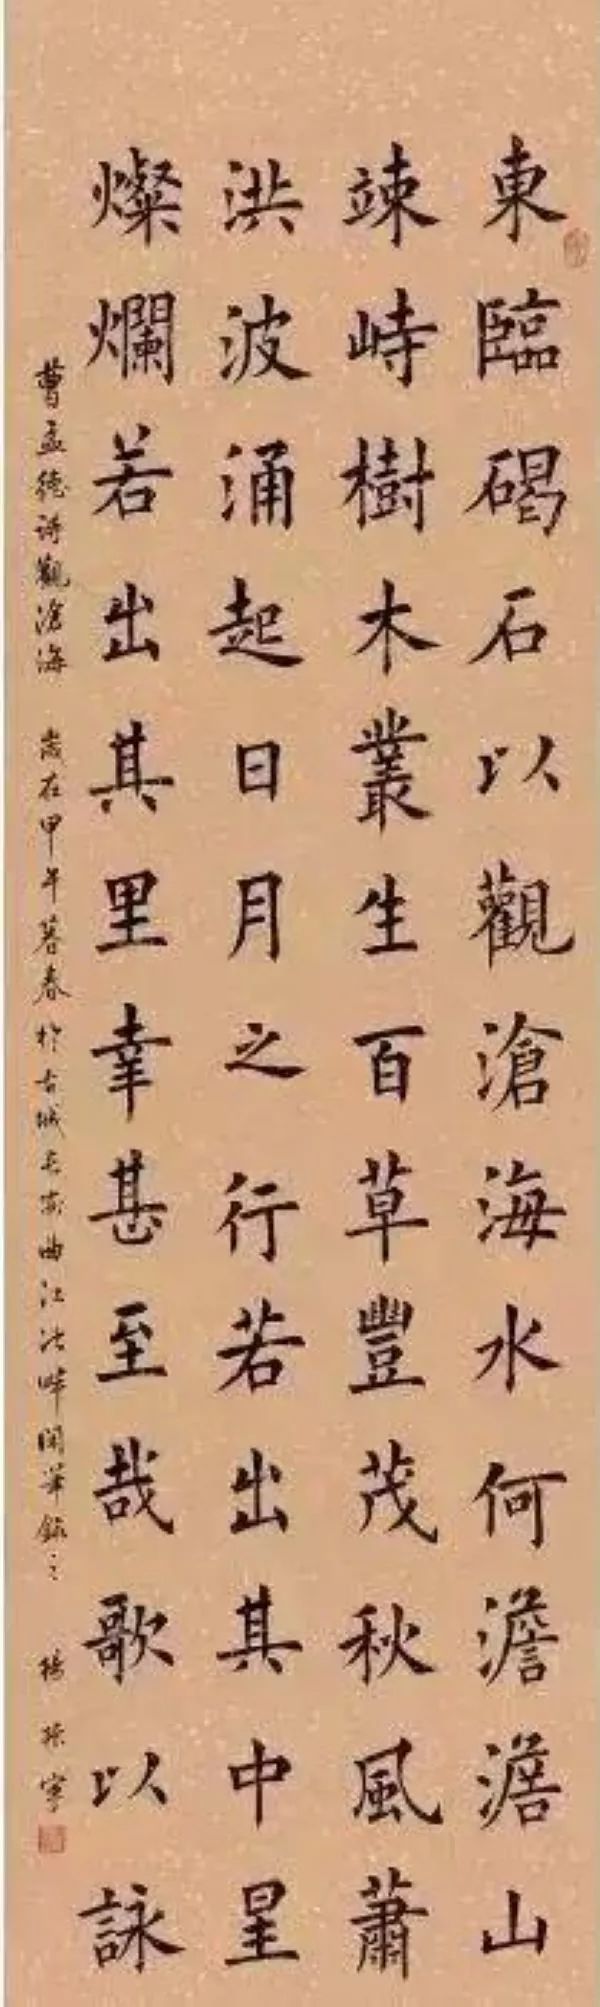 東臨碣石以觀滄海水何澹澹山
竦峙樹木叢生百草豐茂秋風蕭
洪波涌起日月之行若出其中星
燦爛若出其里幸甚至哉歌以詠
曹孟德詩觀滄海 歲在甲午暮春於古城長安曲江池畔開筆錄之 楊